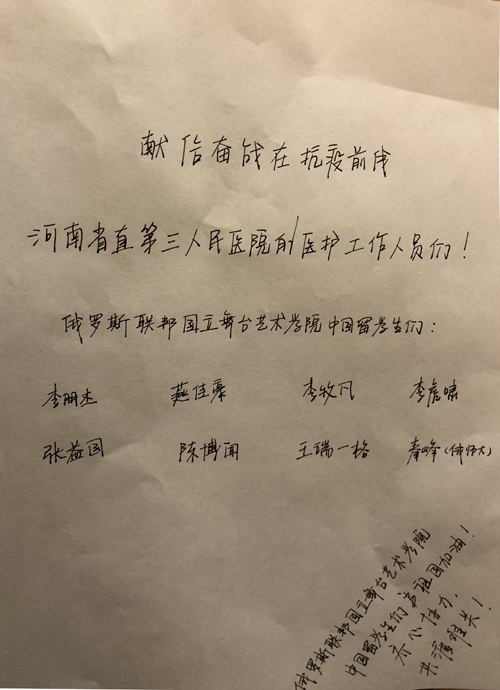 献给奋战在抗疫前线
河南省直第三人民医院的医护工作人员们！
俄罗斯联邦国立舞台艺术学院中国留学生们：
李朋杰 燕佳豪 李牧凡 李虎啸
张益国 陈博闻 王瑞一格 秦峰（佛师大）
俄罗斯联邦国立舞台艺术学院
中国留学生们为祖国加油！
齐心（协）力，
共渡难关！